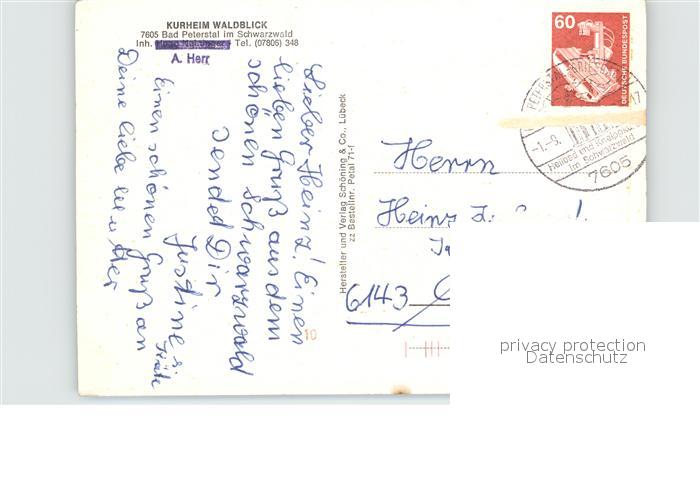 KURHEIM WALDBLICK
7605 Bad Peterstal im Schwarzwald
Inh. Tel. (07806) 348
A. Herr
Lieber Heinz! Einen
lieben Gruß aus dem
schönen Schwarzwald
sendet Dir
Justine
Einen schönen Gruß an
Deine liebe Mutter
Hersteller und Verlag Schöning & Co., Lübeck
zz Bestellnr. Petal 71-f
10
60
DEUTSCHE BUNDESPOST
-1.-9.
Heilbad und Kneippkurort
im Schwarzwald
7605
Herrn
Heinz
6143
privacy protection
Datenschutz